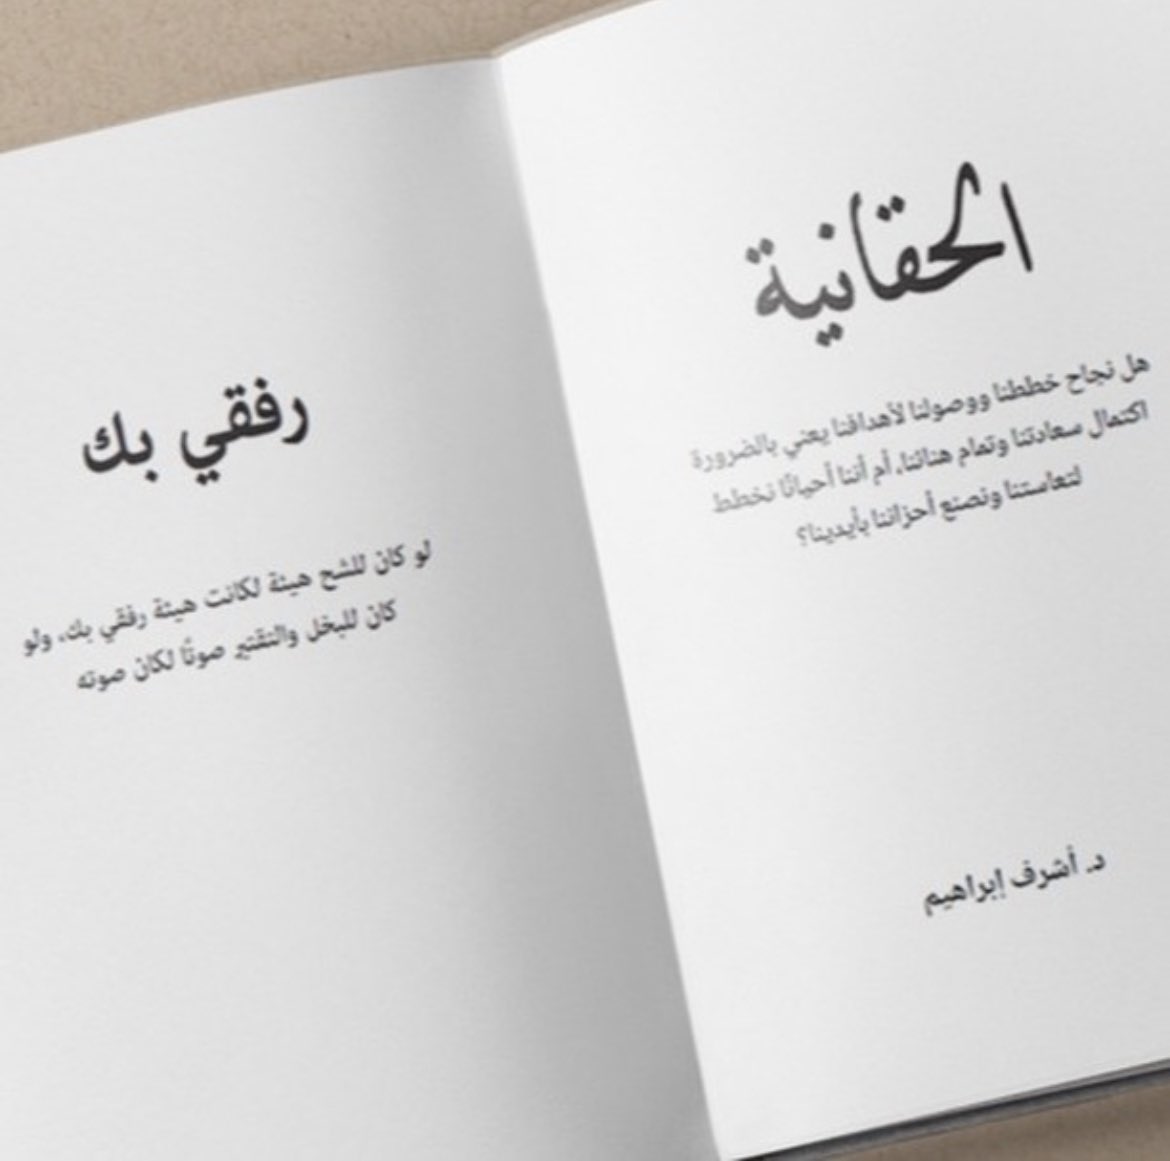 الحقانية
هل نجاح خططنا ووصولنا لأهدافنا يعني بالضرورة
اكتمال سعادتنا وتمام هنائنا، أم أننا أحيانًا نخطط
لتعاستنا ونصنع أحزاننا بأيدينا؟
د. أشرف إبراهيم
رفقي بك
لو كان للشح هيئة لكانت هيئة رفقي بك، ولو
كان للبخل والتقتير صوتًا لكان صوته